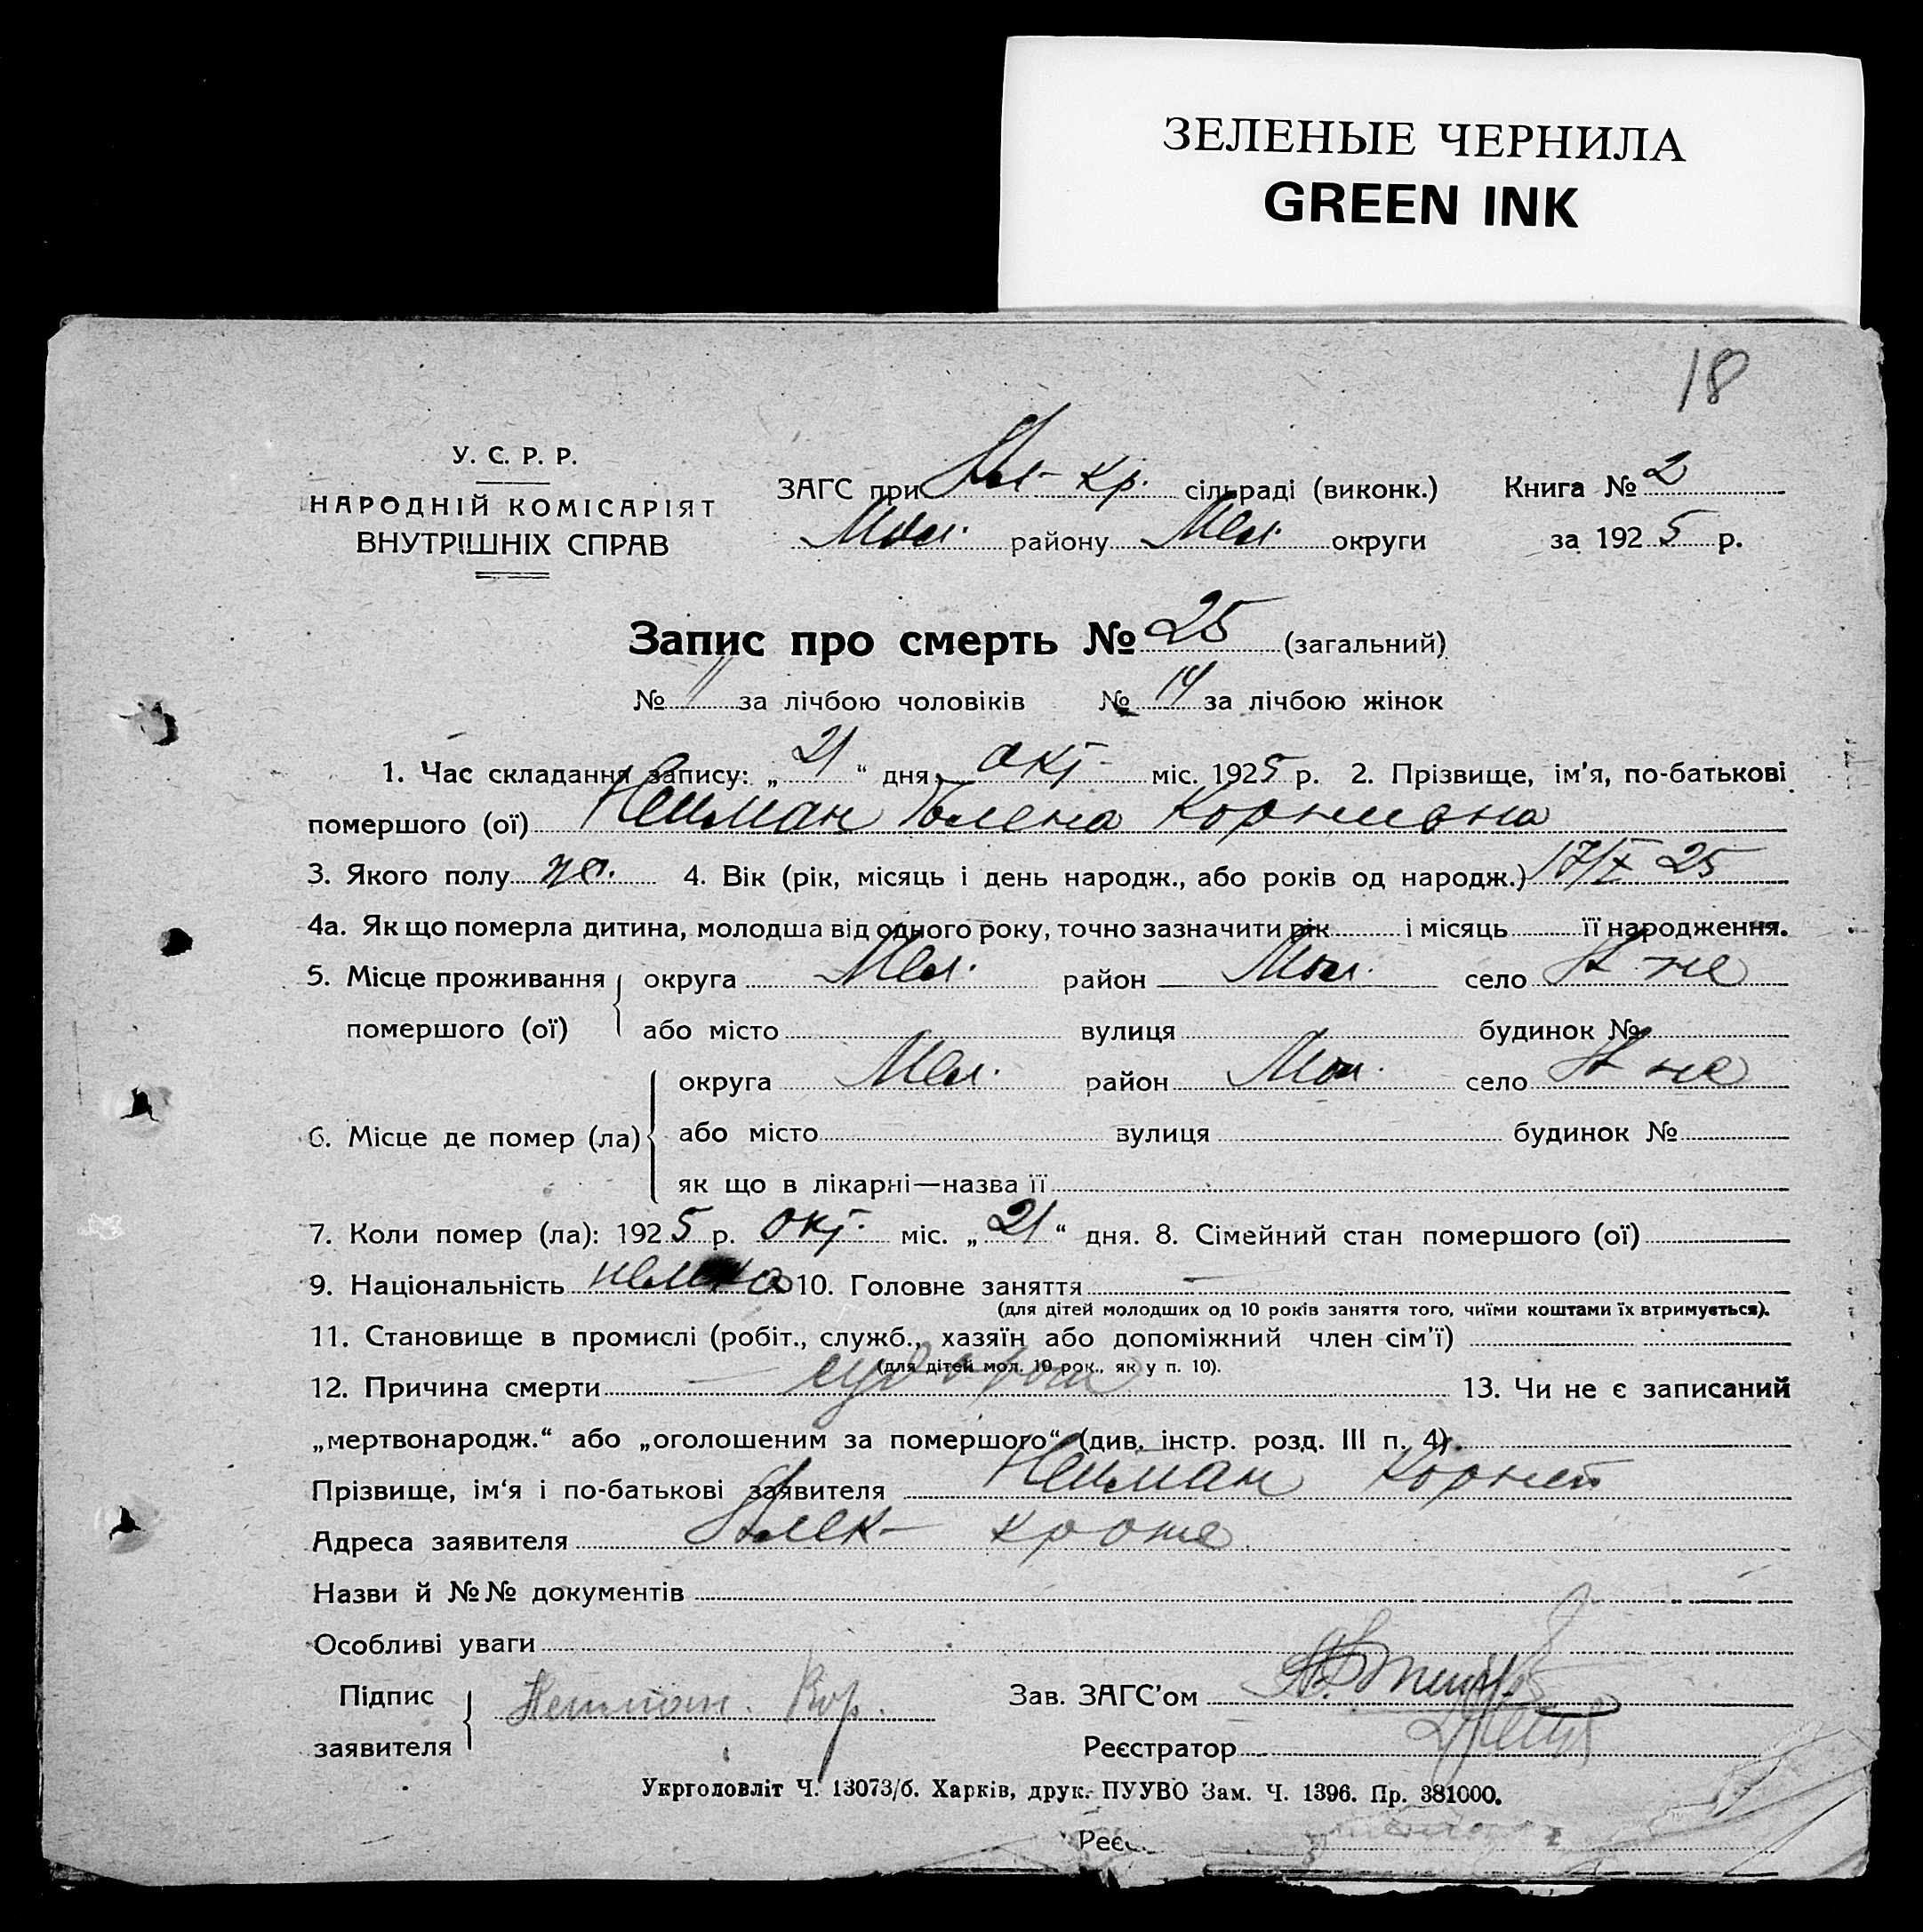 ЗЕЛЕНЫЕ ЧЕРНИЛА
GREEN INK
18
У. С. Р. Р.
НАРОДНІЙ КОМІСАРІЯТ
ВНУТРІШНІХ СПРАВ
ЗАГС при Ал- кр. сільраді (виконк.) Книга № 2
Мол. району Мел. округи за 1925 р.
Запис про смерть № 25 (загальний)
№ 11 за лічбою чоловіків № 14 за лічбою жінок
1. Час складання запису: „21“ дня окт- міс. 1925 р. 2. Прізвище, ім'я, по-батькові
помершого (ої) Нейман Елена Корниевна
3. Якого полу 4. Вік (рік, місяць і день народж., або років од народж.) 17/X 25
4а. Як що померла дитина, молодша від одного року, точно зазначити рік і місяць її народження.
5. Місце проживання округа Мел. район Мол. село
помершого (ої) або місто вулиця будинок №
округа Мел. район Мол. село
6. Місце де помер (ла) або місто вулиця будинок №
як що в лікарні—назва її
7. Коли помер (ла): 1925 р. окт. міс. „21“ дня. 8. Сімейний стан помершого (ої)
9. Національність немка 10. Головне заняття —
(для дітей молодших од 10 років заняття того, чиїми коштами їх втримується).
11. Становище в промислі (робіт., служб., хазяїн або допоміжний член сім'ї)
(для дітей мол. 10 рок., як у п. 10).
12. Причина смерти 13. Чи не є записаний
„мертвонародж.“ або „оголошеним за помершого“ (див. інстр. розд. III п. 4)
Прізвище, ім'я і по-батькові заявителя Нейман Корней
Адреса заявителя Алек- кроне
Назви й №№ документів
Особливі уваги
Підпис Нейман. Кор. Зав. ЗАГС'ом
заявителя Реєстратор
Укрголовліт Ч. 13073/б. Харків, друк. ПУУВО Зам. Ч. 1396. Пр. 381000.